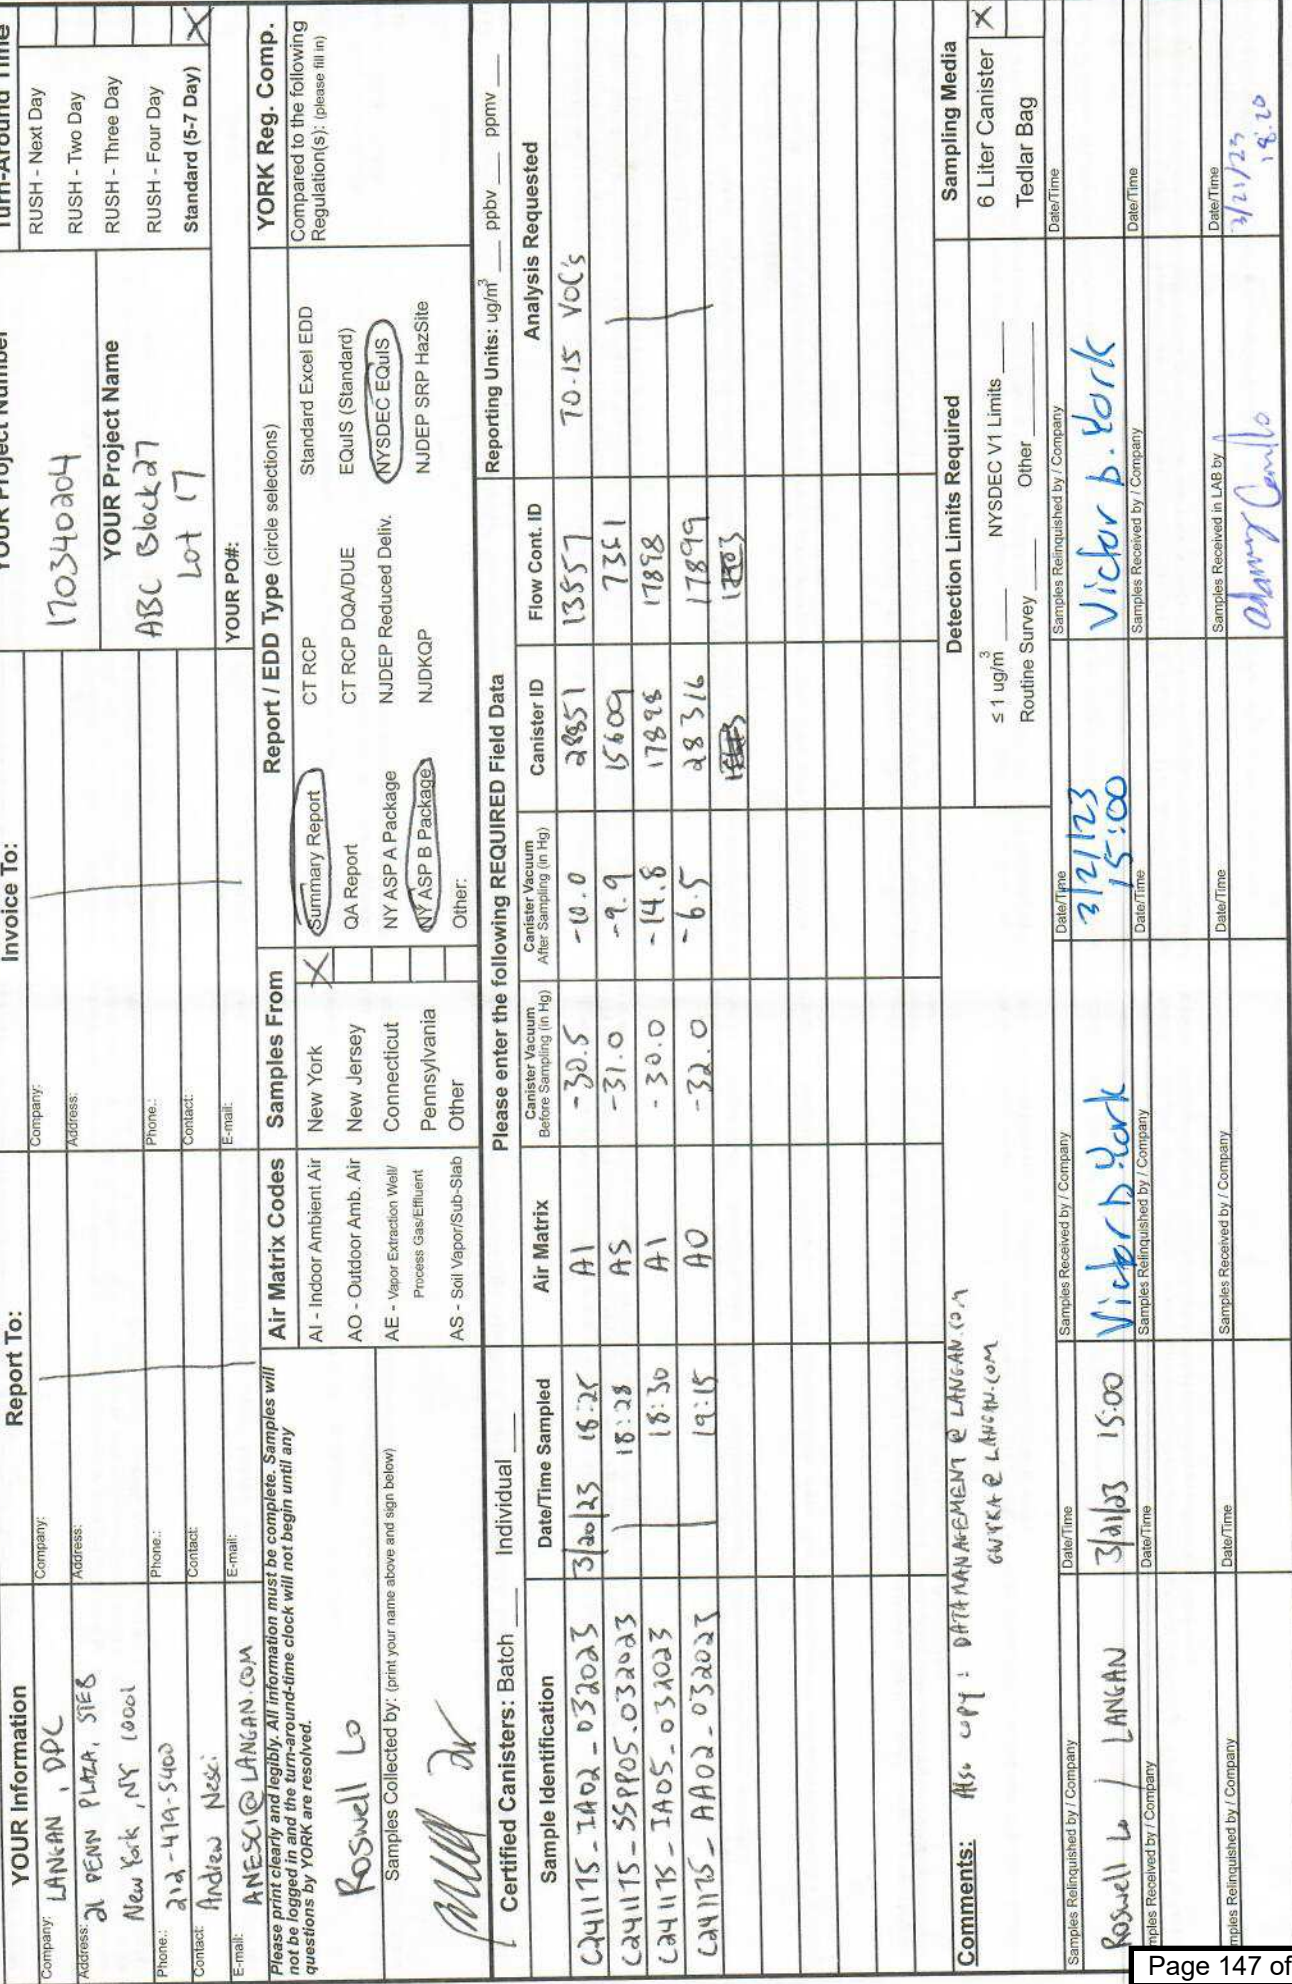 YOUR Information
Company: LANGAN, DPC
Address: 21 PENN PLAZA, STE8
New York, NY 10001
Phone.: 212-479-5400
Contact: Andrew Nesci
E-mail: ANESCI@LANGAN.COM
Report To:
Company:
Address:
Phone.:
Contact:
E-mail:
Invoice To:
Company:
Address:
Phone.:
Contact:
E-mail:
YOUR Project Number
170340204
YOUR Project Name
ABC Block 27
Lot 17
YOUR PO#:
Turn-Around Time
RUSH - Next Day
RUSH - Two Day
RUSH - Three Day
RUSH - Four Day
Standard (5-7 Day) X
Please print clearly and legibly. All information must be complete. Samples will
not be logged in and the turn-around-time clock will not begin until any
questions by YORK are resolved.
Roswell Lo
Samples Collected by: (print your name above and sign below)
Air Matrix Codes
AI - Indoor Ambient Air
AO - Outdoor Amb. Air
AE - Vapor Extraction Well/
Process Gas/Effluent
AS - Soil Vapor/Sub-Slab
Samples From
New York X
New Jersey
Connecticut
Pennsylvania
Other
Report / EDD Type (circle selections)
Summary Report CT RCP Standard Excel EDD
QA Report CT RCP DQA/DUE EQuIS (Standard)
NY ASP A Package NJDEP Reduced Deliv. NYSDEC EQuIS
NY ASP B Package NJDKQP NJDEP SRP HazSite
Other:
YORK Reg. Comp.
Compared to the following
Regulation(s): (please fill in)
Certified Canisters: Batch ___ Individual ___
Please enter the following REQUIRED Field Data
Reporting Units: ug/m³ ___ ppbv ___ ppmv ___
Sample Identification Date/Time Sampled Air Matrix Canister Vacuum Before Sampling (in Hg) Canister Vacuum After Sampling (in Hg) Canister ID Flow Cont. ID Analysis Requested
C241175_IA02_032023 3/20/23 18:25 AI -30.5 -10.0 28851 13557 TO-15 VOC's
C241175_SSPP05_032023 18:28 AS -31.0 -9.9 15609 7351
C241175_IA05_032023 18:30 AI -30.0 -14.8 17898 17898
C241175_AA02_032023 19:15 AO -32.0 -6.5 28316 17899
Comments: Also copy: DATAMANAGEMENT@LANGAN.COM
Detection Limits Required
≤ 1 ug/m³ ___ NYSDEC V1 Limits ___
Routine Survey ___ Other ___
Sampling Media
6 Liter Canister X
Tedlar Bag
Samples Relinquished by / Company Date/Time Samples Received by / Company Date/Time Samples Relinquished by / Company Date/Time
Roswell Lo / LANGAN 3/21/23 15:00 Victor D. York 3/21/23 15:00 Victor D. York
mples Received by / Company Date/Time Samples Relinquished by / Company Date/Time Samples Received by / Company Date/Time
mples Relinquished by / Company Date/Time Samples Received by / Company Date/Time Samples Received in LAB by Date/Time
3/21/23
18:20
Page 147 of